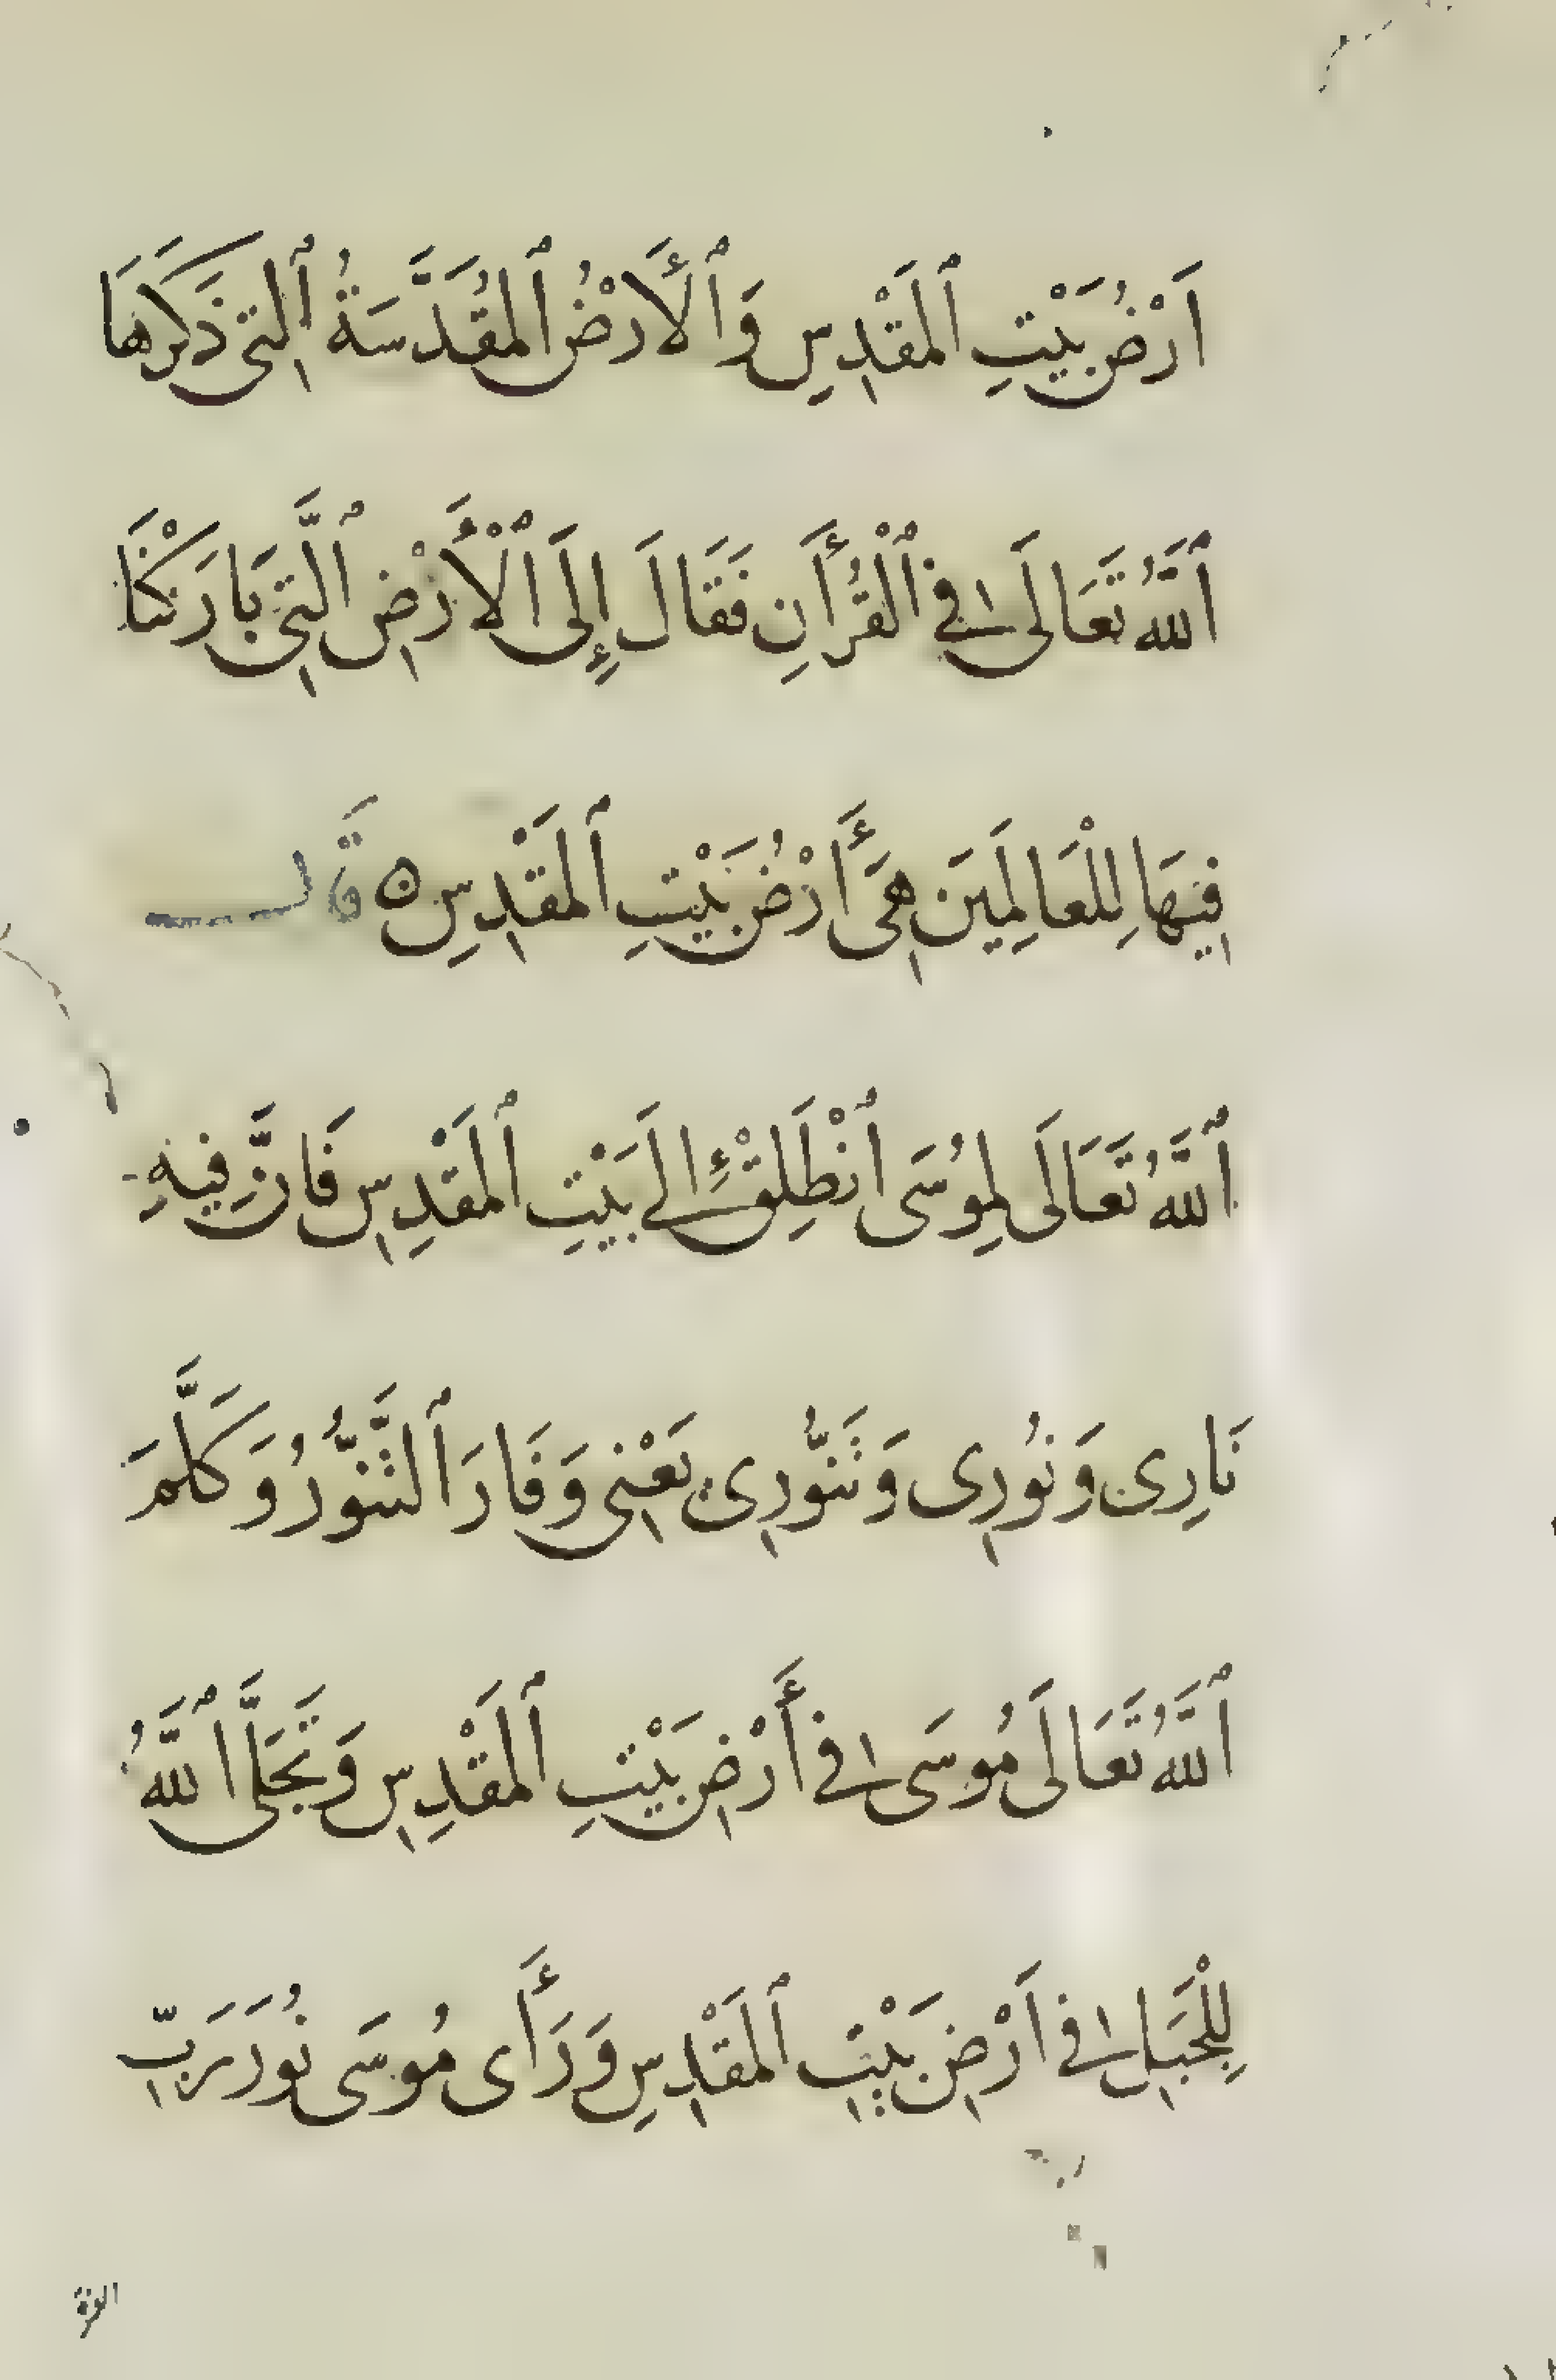 اَرْضُ بَيْتِ ٱلمَقْدِسِ وَٱلأَرْضُ ٱلمُقَدَّسَةُ ٱلتِى ذَكَرَهَا
ٱللَّهُ تَعَالَى فِى ٱلْقُرْأَنِ فَقَالَ إِلَى ٱلْأَرْضِ ٱلَّتِى بَارَكْنَا
فِيهَا لِلْعَالَمِينَ هِىَ أَرْضُ بَيْتِ ٱلمَقْدِسِ ۝ وَقَالَ
ٱللَّهُ تَعَالَى لِمُوسَى ٱنْطَلِقْ إِلَى بَيْتِ ٱلمَقْدِسِ فَاِنَّ فِيهِ
نَارِى وَنُورِى وَتَنُّورِى يَعْنِى وَفَارَ ٱلتَّنُّورُ وَكَلَّمَ
ٱللَّهُ تَعَالَى مُوسَى فِى أَرْضِ بَيْتِ ٱلمَقْدِسِ وَتَجَلَّى ٱللَّهُ
لِلْجَبَلِ فِى اَرْضِ بَيْتِ ٱلمَقْدِسِ وَرَأَى مُوسَى نُورَ رَبِّ